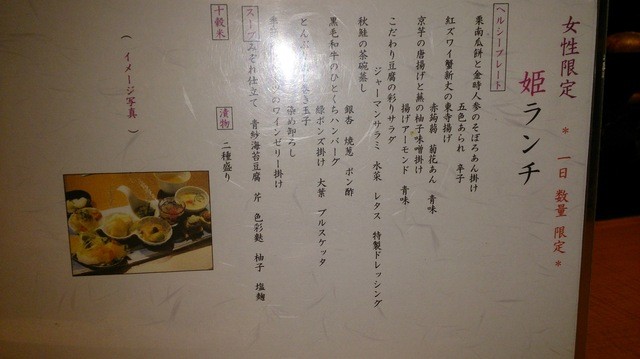 女性限定
＊ 一日 数量 限定 ＊
姫ランチ
ヘルシープレート
栗南瓜餅と金時人参のそぼろあん掛け
五色あられ 辛子
紅ズワイ蟹新丈の東寺揚げ
赤蒟蒻 菊花あん 青味
京芋の唐揚げと蕪の柚子味噌掛け
揚げアーモンド 青味
こだわり豆腐の彩りサラダ
ジャーマンサラミ 水菜 レタス 特製ドレッシング
秋鮭の茶碗蒸し
銀杏 焼葱 ポン酢
黒毛和牛のひとくちハンバーグ
緑ポンズ掛け 大葉 ブルスケッタ
き玉子
染め卸ろし
のワインゼリー掛け
スープ みぞれ仕立て 青紗海苔豆腐 芹 色彩麩 柚子 塩麹
十穀米
漬物 二種盛り
（ イメージ写真 ）